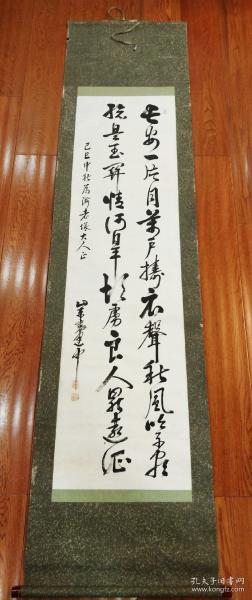 长安一片月万户擣衣声秋风吹不尽
总是玉关情何日平胡虏良人罢远征
己巳中秋为河
大人正
孔夫子旧书网